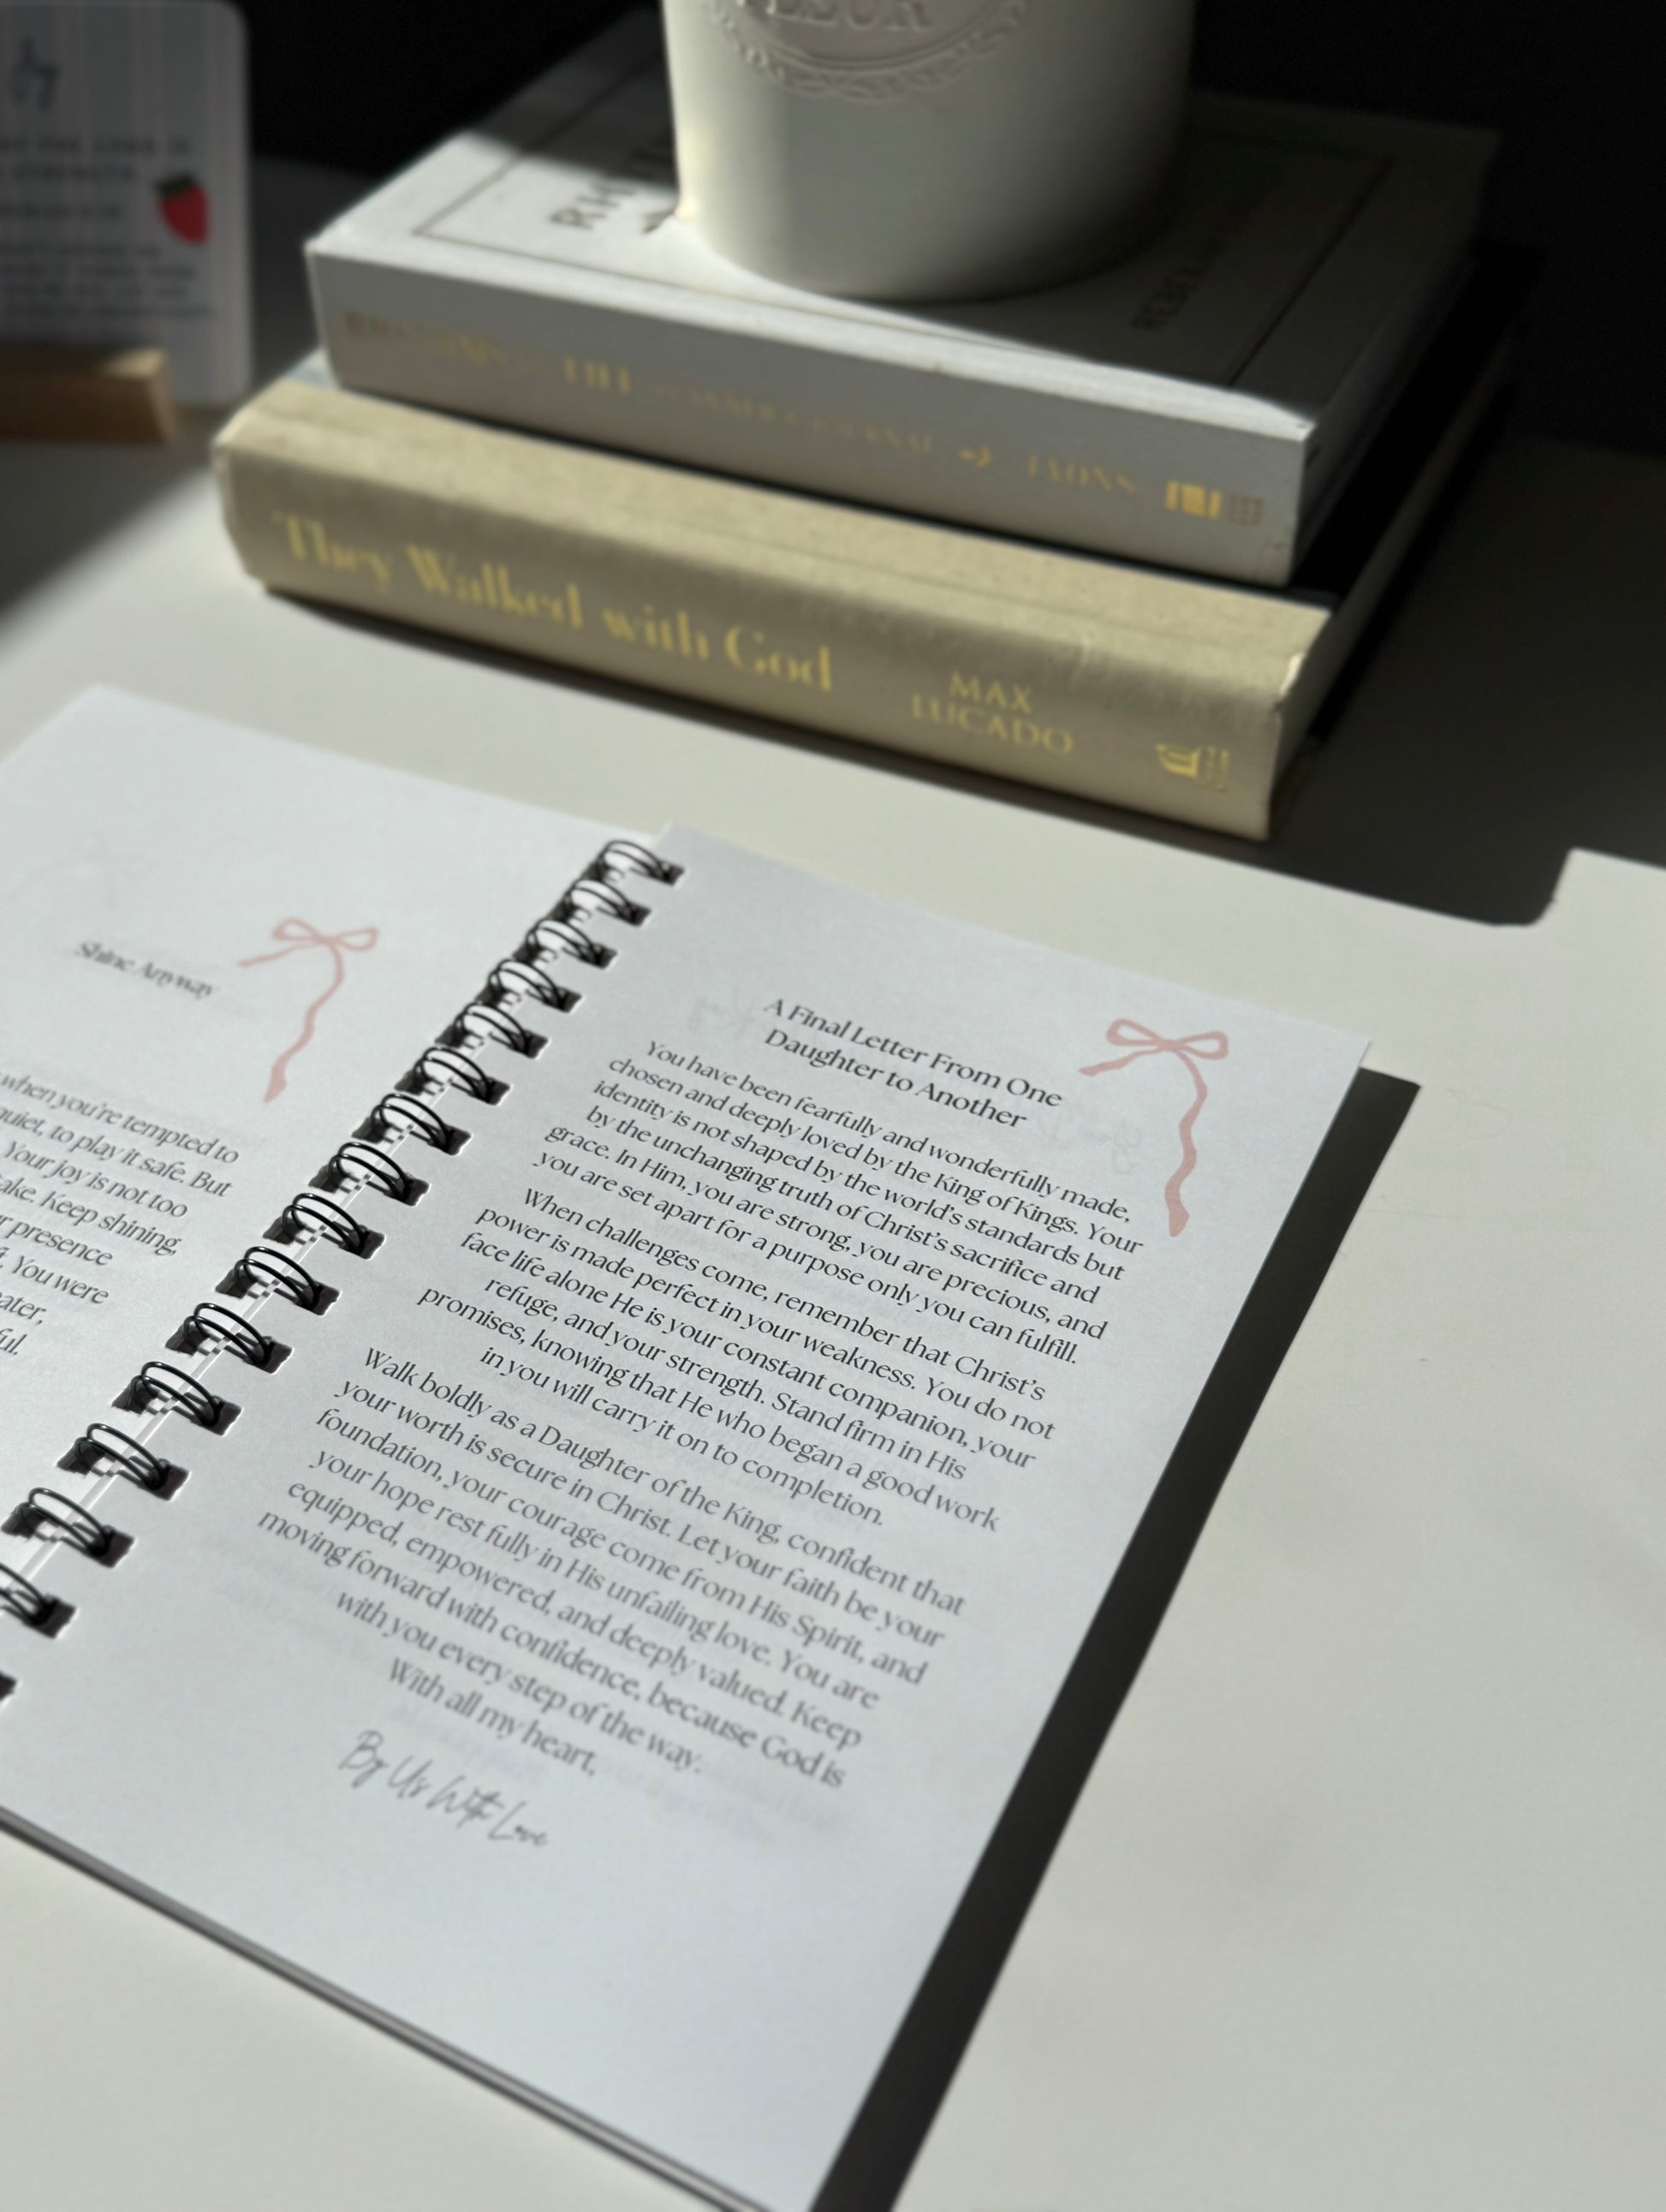 FLEUR
LIFE
LYONS
They Walked with God
MAX
LUCADO
Shine Anyway
when you're tempted to
quiet, to play it safe. But
Your joy is not too
Keep shining,
presence
You were
A Final Letter From One
Daughter to Another
You have been fearfully and wonderfully made,
chosen and deeply loved by the King of Kings. Your
identity is not shaped by the world's standards but
by the unchanging truth of Christ's sacrifice and
grace. In Him, you are strong, you are precious, and
you are set apart for a purpose only you can fulfill.
When challenges come, remember that Christ's
power is made perfect in your weakness. You do not
face life alone He is your constant companion, your
refuge, and your strength. Stand firm in His
promises, knowing that He who began a good work
in you will carry it on to completion.
Walk boldly as a Daughter of the King, confident that
your worth is secure in Christ. Let your faith be your
foundation, your courage come from His Spirit, and
your hope rest fully in His unfailing love. You are
equipped, empowered, and deeply valued. Keep
moving forward with confidence, because God is
with you every step of the way.
With all my heart,
By Us With Love